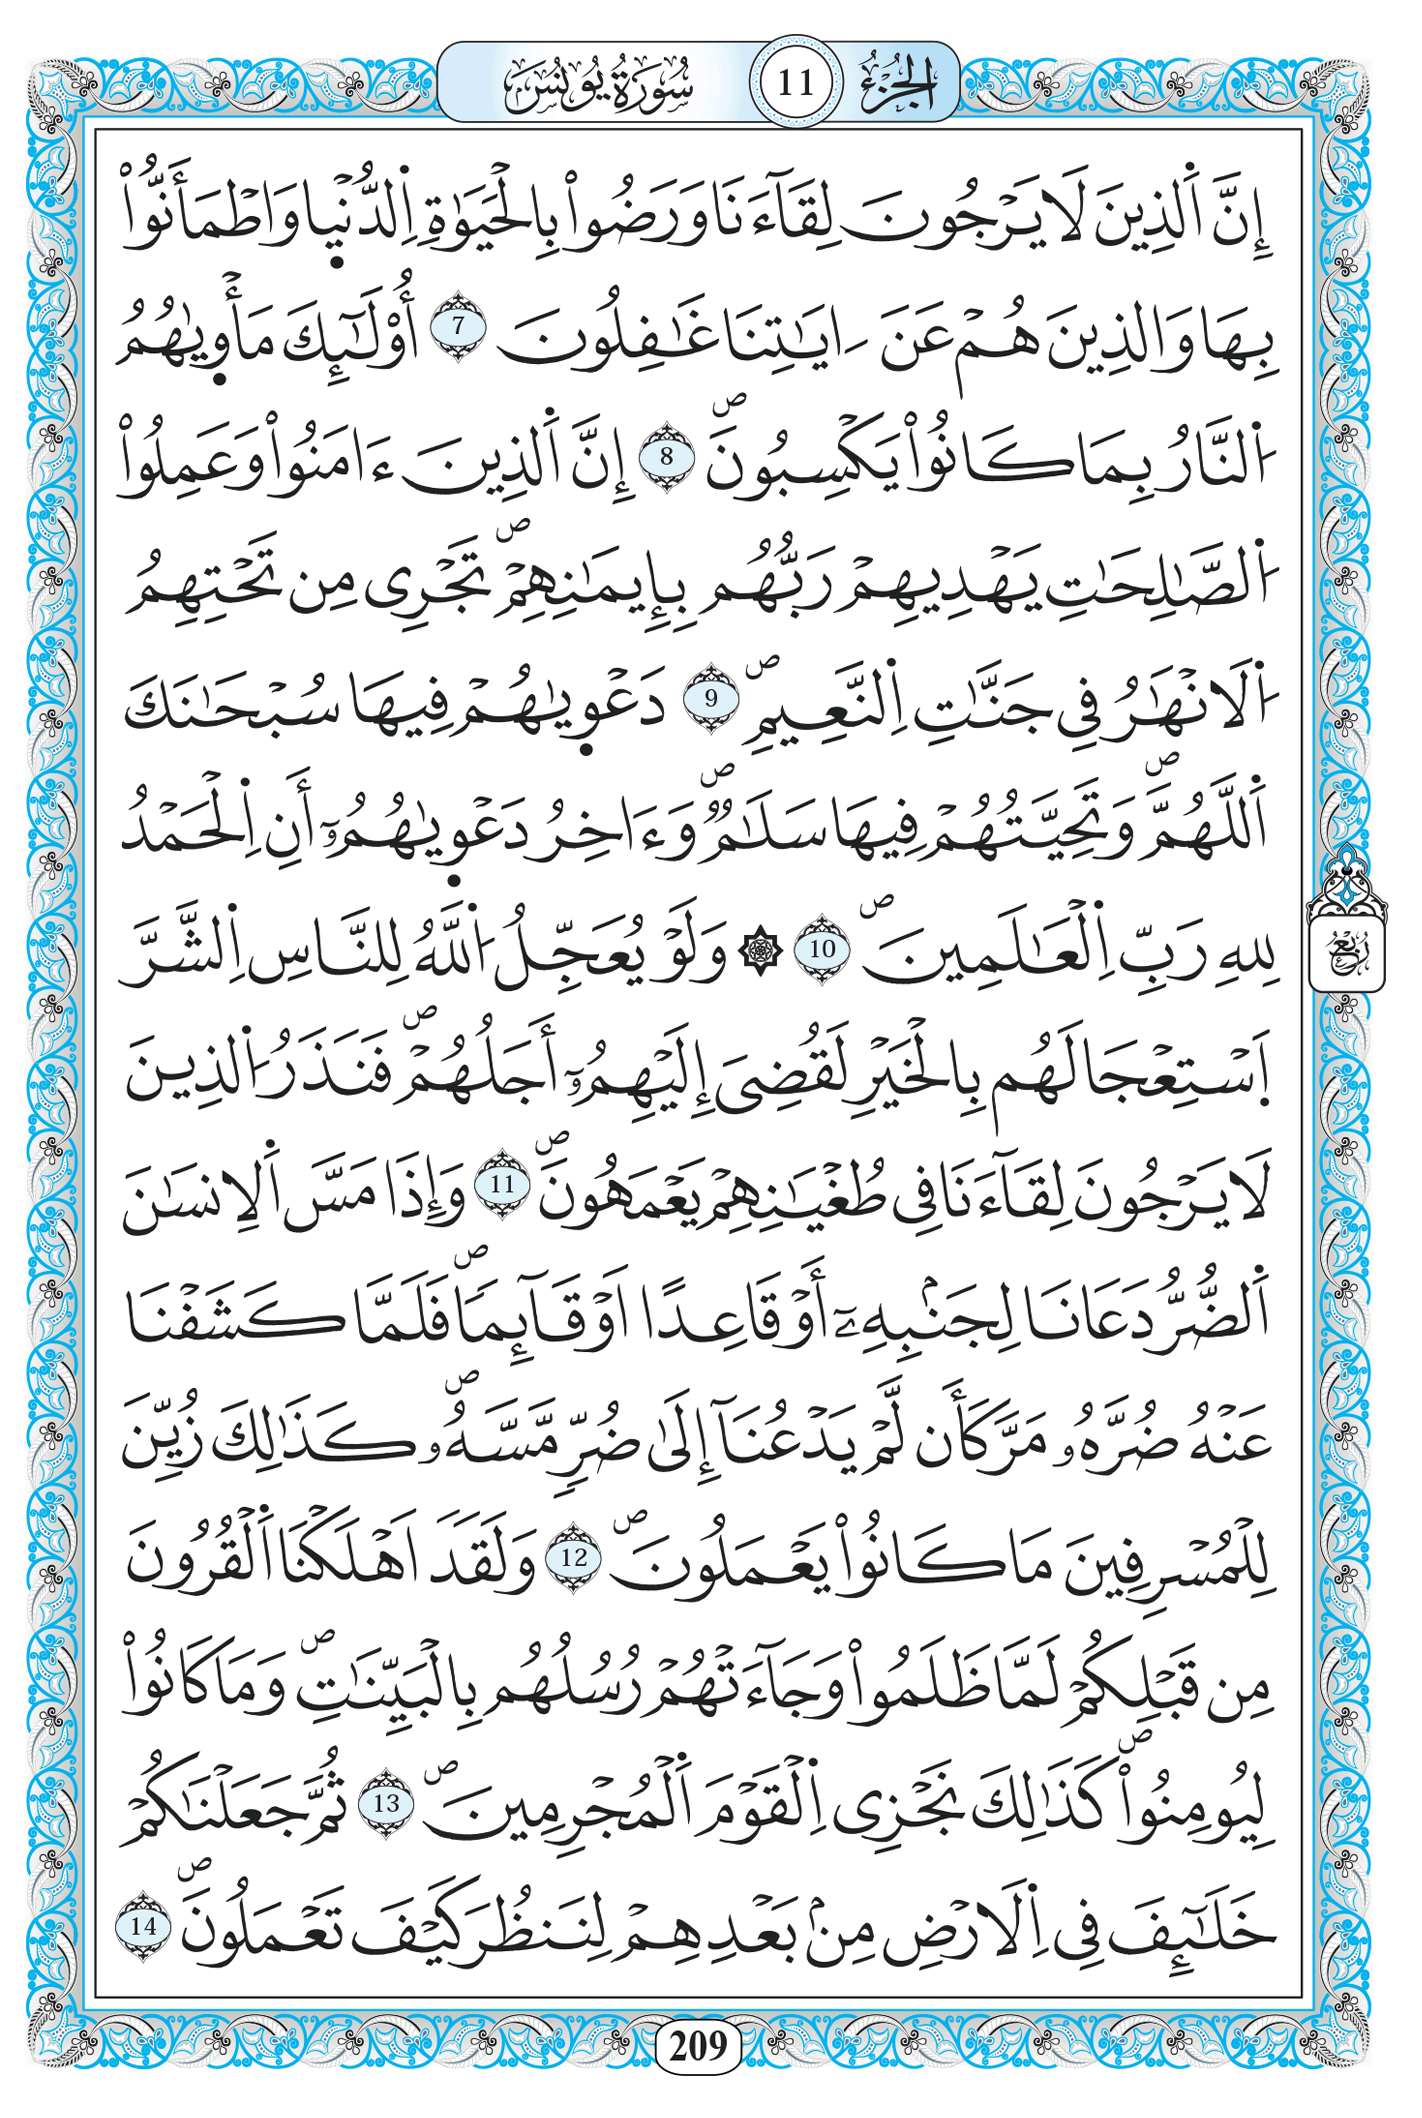 الجُزْءُ 11 سُورَةُ يُونُسَ
إِنَّ اَ۬لذِينَ لَا يَرْجُونَ لِقَآءَنَا وَرَضُواْ بِالْحَيَوٰةِ اِ۬لدُّنْي۪ا وَاطْمَأَنُّواْ
بِهَا وَالذِينَ هُمْ عَنَ اٰيَٰتِنَا غَٰفِلُونَ 7 أُوْلَٰٓئِكَ مَأْو۪يٰهُمُ
اُ۬لنَّارُ بِمَا كَانُواْ يَكْسِبُونَۖ 8 إِنَّ اَ۬لذِينَ ءَامَنُواْ وَعَمِلُواْ
اُ۬لصَّٰلِحَٰتِ يَهْدِيهِمْ رَبُّهُم بِإِيمَٰنِهِمْۖ تَجْرِى مِن تَحْتِهِمُ
اُ۬لَانْهَٰرُ فِى جَنَّٰتِ اِ۬لنَّعِيمِۖ 9 دَعْو۪يٰهُمْ فِيهَا سُبْحَٰنَكَ
اَ۬للَّهُمَّۖ وَتَحِيَّتُهُمْ فِيهَا سَلَٰمٌۖ وَءَاخِرُ دَعْو۪يٰهُمُۥٓ أَنِ اِ۬لْحَمْدُ
لِلهِ رَبِّ اِ۬لْعَٰلَمِينَۖ 10 ۞ وَلَوْ يُعَجِّلُ اُ۬للَّهُ لِلنَّاسِ اِ۬لشَّرَّ
اَ۪سْتِعْجَالَهُم بِالْخَيْرِ لَقُضِىَ إِلَيْهِمُۥٓ أَجَلُهُمْۖ فَنَذَرُ اُ۬لذِينَ
لَا يَرْجُونَ لِقَآءَنَا فِى طُغْيَٰنِهِمْ يَعْمَهُونَۖ 11 وَإِذَا مَسَّ اَ۬لِانسَٰنَ
اَ۬لضُّرُّ دَعَانَا لِجَنۢبِهِۦٓ أَوْ قَاعِدًا اَوْ قَآئِمًاۖ فَلَمَّا كَشَفْنَا
عَنْهُ ضُرَّهُۥ مَرَّ كَأَن لَّمْ يَدْعُنَآ إِلَىٰ ضُرٍّ مَّسَّهُۥۖ كَذَٰلِكَ زُيِّنَ
لِلْمُسْرِفِينَ مَا كَانُواْ يَعْمَلُونَۖ 12 وَلَقَدَ اَهْلَكْنَا اَ۬لْقُرُونَ
مِن قَبْلِكُمْ لَمَّا ظَلَمُواْ وَجَآءَتْهُمْ رُسُلُهُم بِالْبَيِّنَٰتِۖ وَمَا كَانُواْ
لِيُومِنُواْۖ كَذَٰلِكَ نَجْزِى اِ۬لْقَوْمَ اَ۬لْمُجْرِمِينَۖ 13 ثُمَّ جَعَلْنَٰكُمْ
خَلَٰٓئِفَ فِى اِ۬لَارْضِ مِنۢ بَعْدِهِمْ لِنَنظُرَ كَيْفَ تَعْمَلُونَۖ 14
رُبُعْ
209